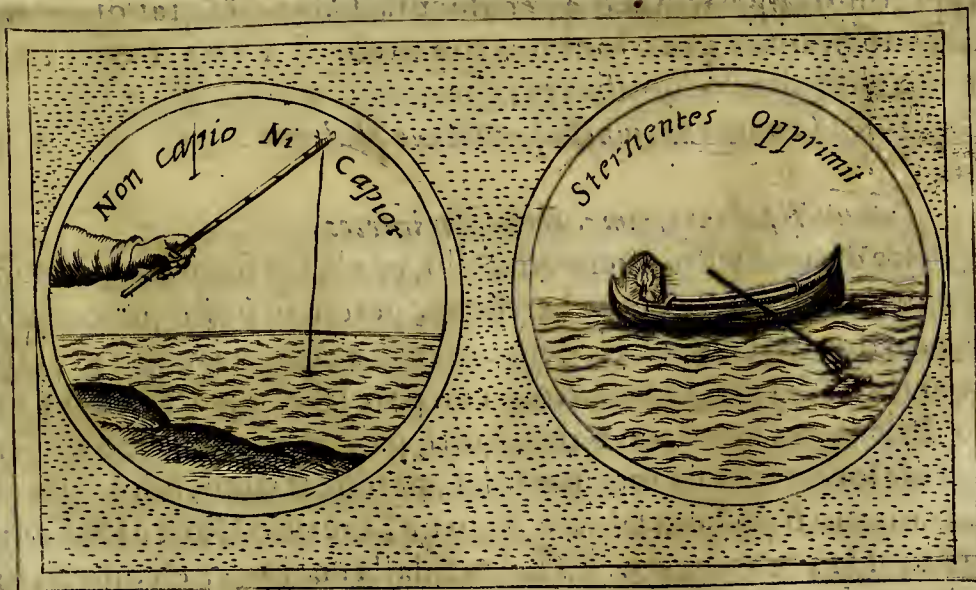 Non capio Ni Capior
Sternentes Opprimit